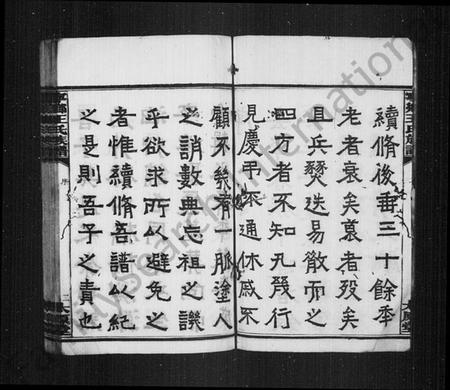 續脩後垂三十餘年
老者衰矣衰者歿矣
且兵燹迭易散而之
四方者不知凡幾行
見慶弔不通休戚不
顧不幾有一脈塗人
之誚數典忘祖之譏
乎欲求所以避免之
者惟續脩吾譜以紀
之是則吾子之責也
王氏族譜
序
二
FamilySearch International